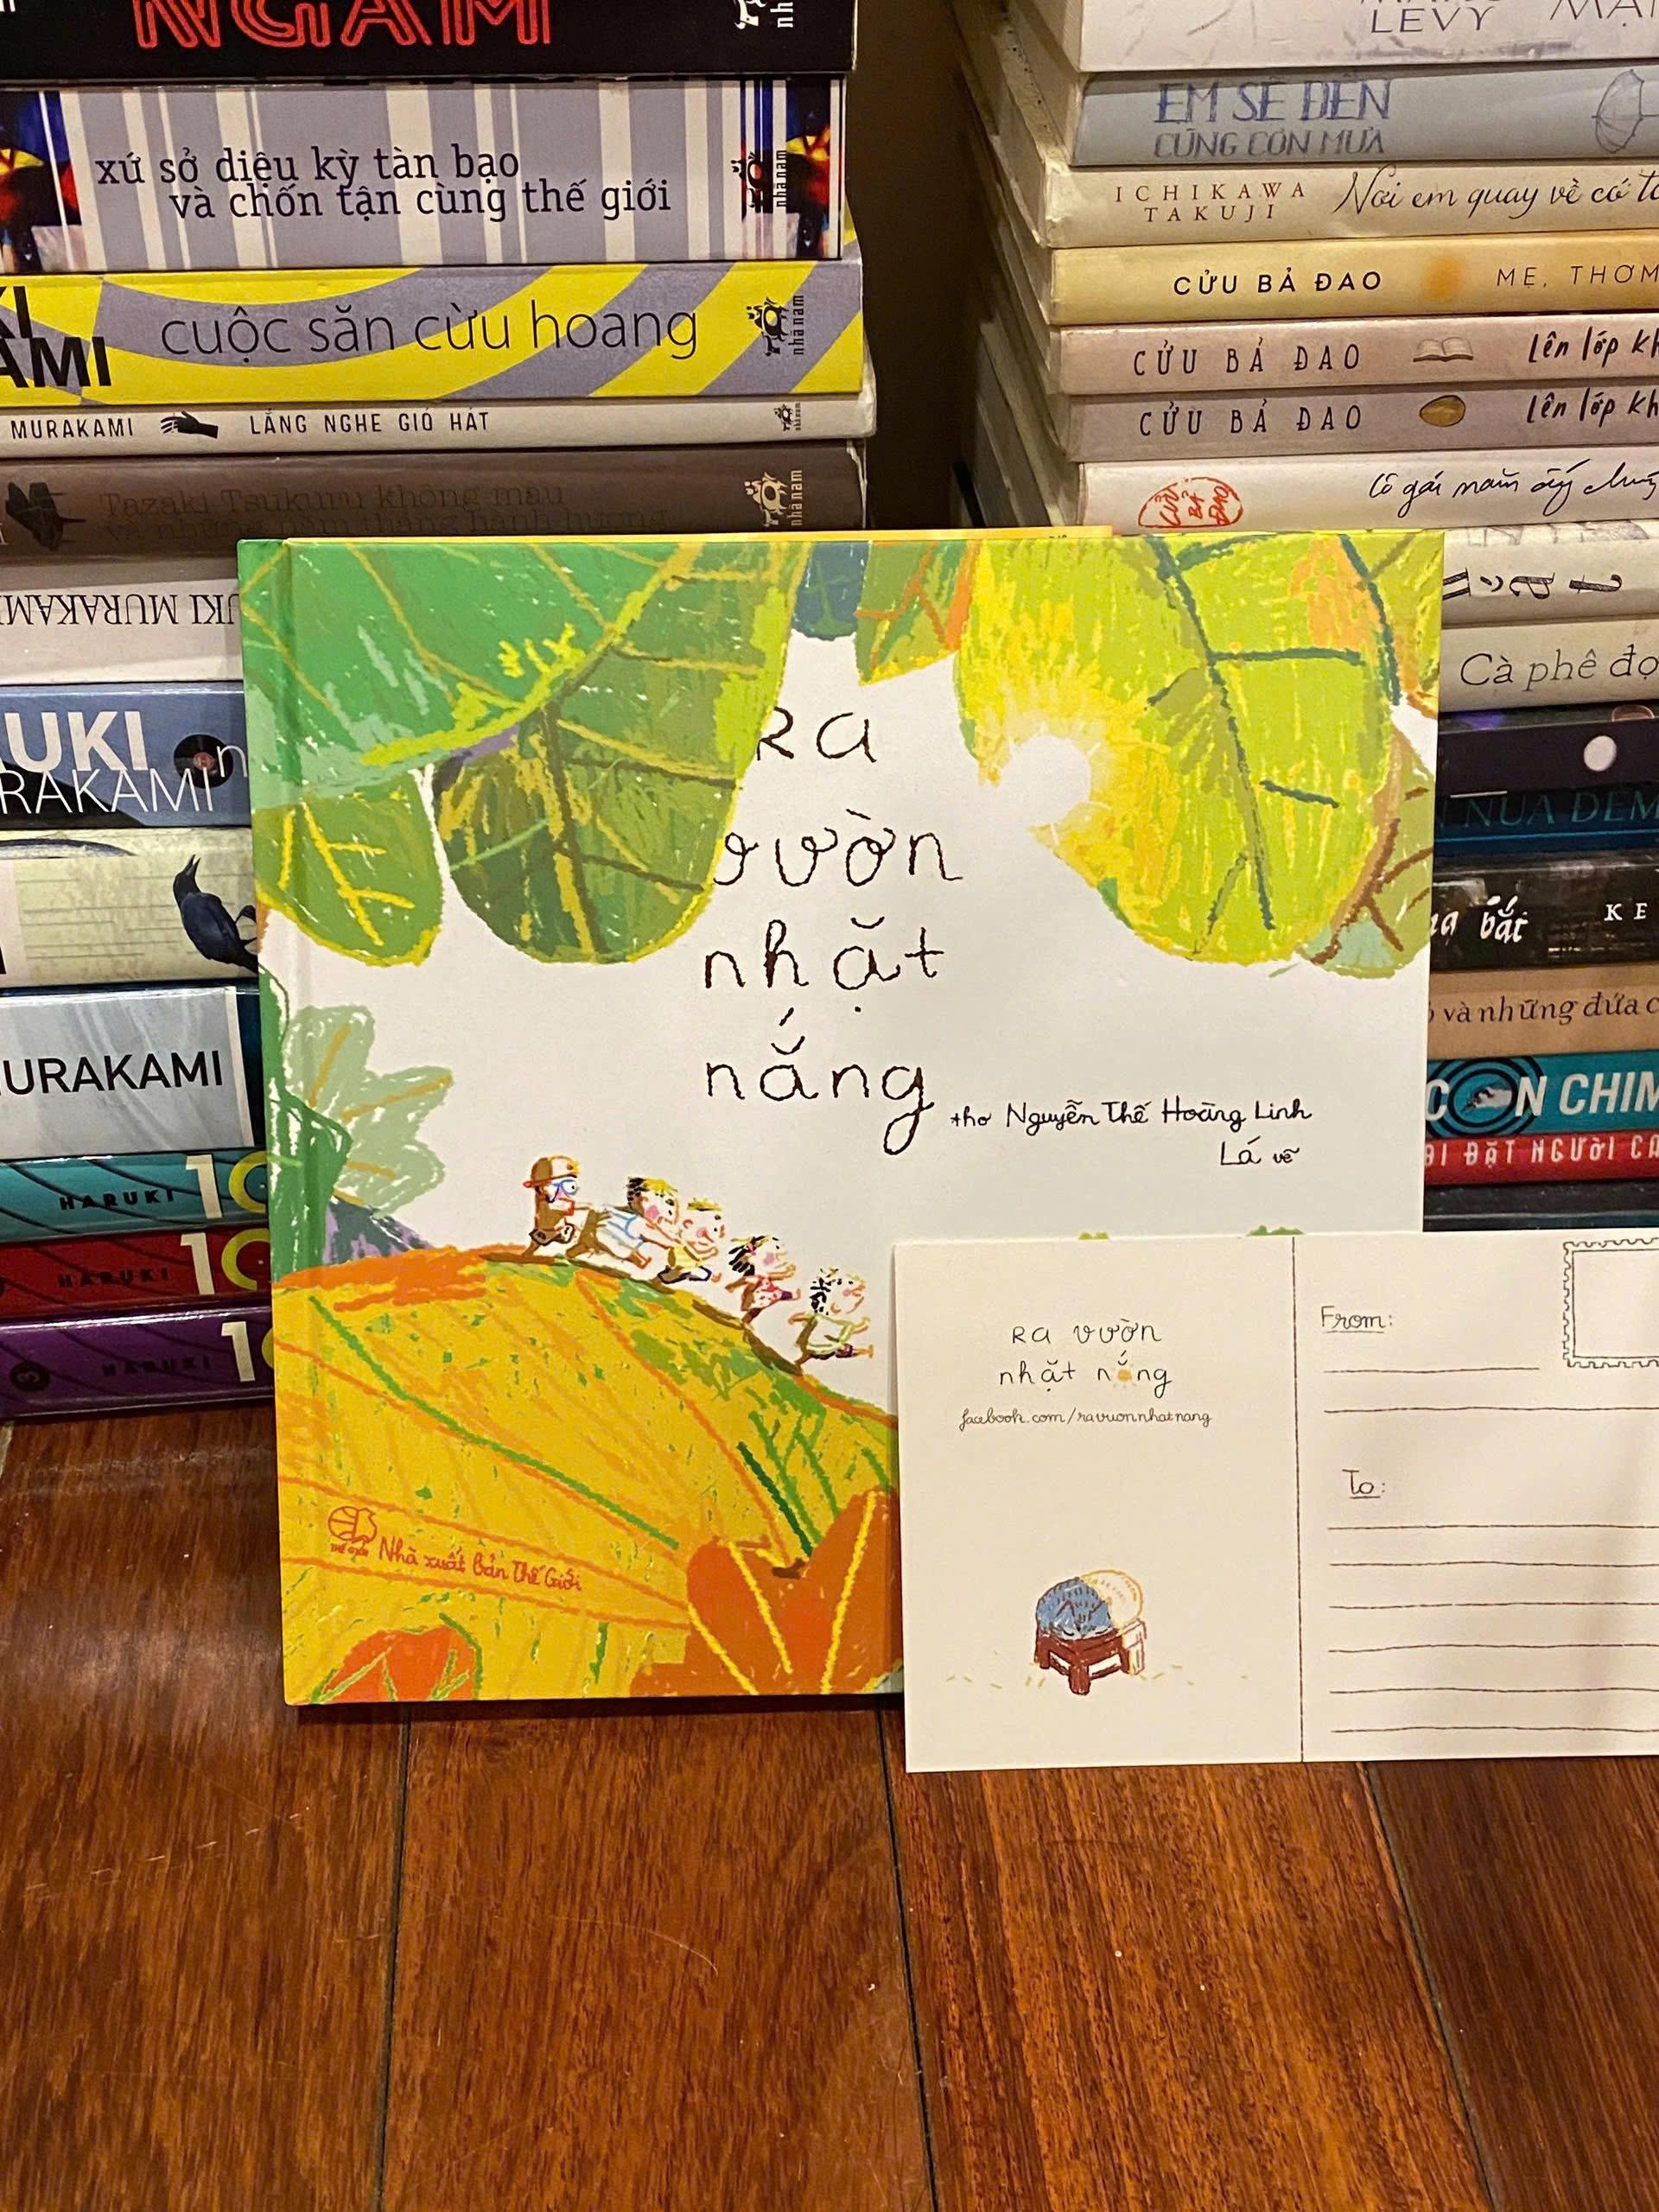 NGẦM
nhã nam
xứ sở diệu kỳ tàn bạo
và chốn tận cùng thế giới
nhã nam
cuộc săn cừu hoang
nhã nam
MURAKAMI
LẮNG NGHE GIÓ HÁT
nhã nam
Tazaki Tsukuru không màu
và những năm tháng hành hương
nhã nam
MURAKAMI
RAKAMI
URAKAMI
HARUKI
HARUKI
3
HARUKI
LEVY
EM SẼ ĐẾN
CÙNG CƠN MƯA
ICHIKAWA
TAKUJI
Nơi em quay về có
CỬU BẢ ĐAO
MẸ, THƠM
CỬU BẢ ĐAO
Lên lớp
CỬU BẢ ĐAO
Lên lớp
CỬU
BẢ
ĐAO
Cô gái năm ấy
Cà phê
NỬA ĐÊM
bắt
và những đứa
CON CHIM
ĐẶT NGƯỜI
Ra
vườn
nhặt
nắng
thơ Nguyễn Thế Hoàng Linh
Lá vẽ
THẾ GIỚI
Nhà xuất bản Thế Giới
Ra vườn
nhặt nắng
facebook.com/ravuonnhatnang
From:
To: